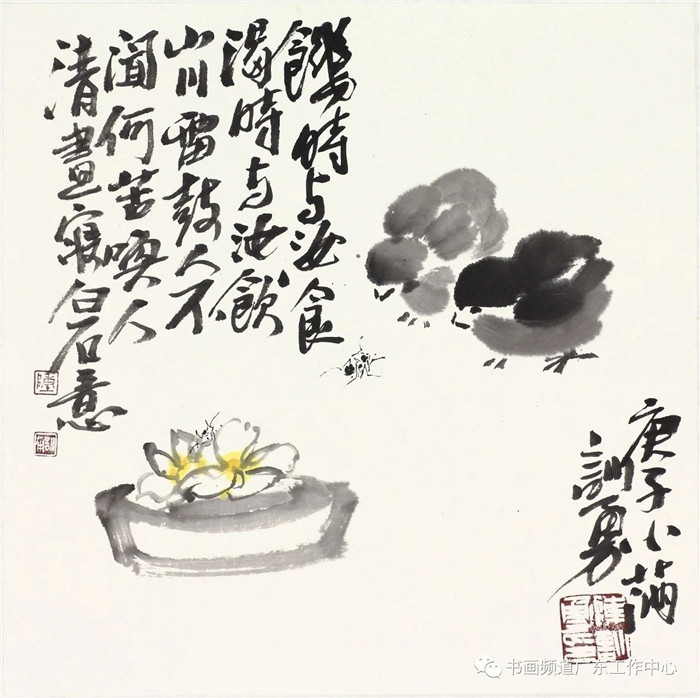 饑時与汝食
渴時与汝飲
山川雷鼓人不
聞何苦喚人
清晝寢白石意
庚子小滿
訓勇
书画频道广东工作中心